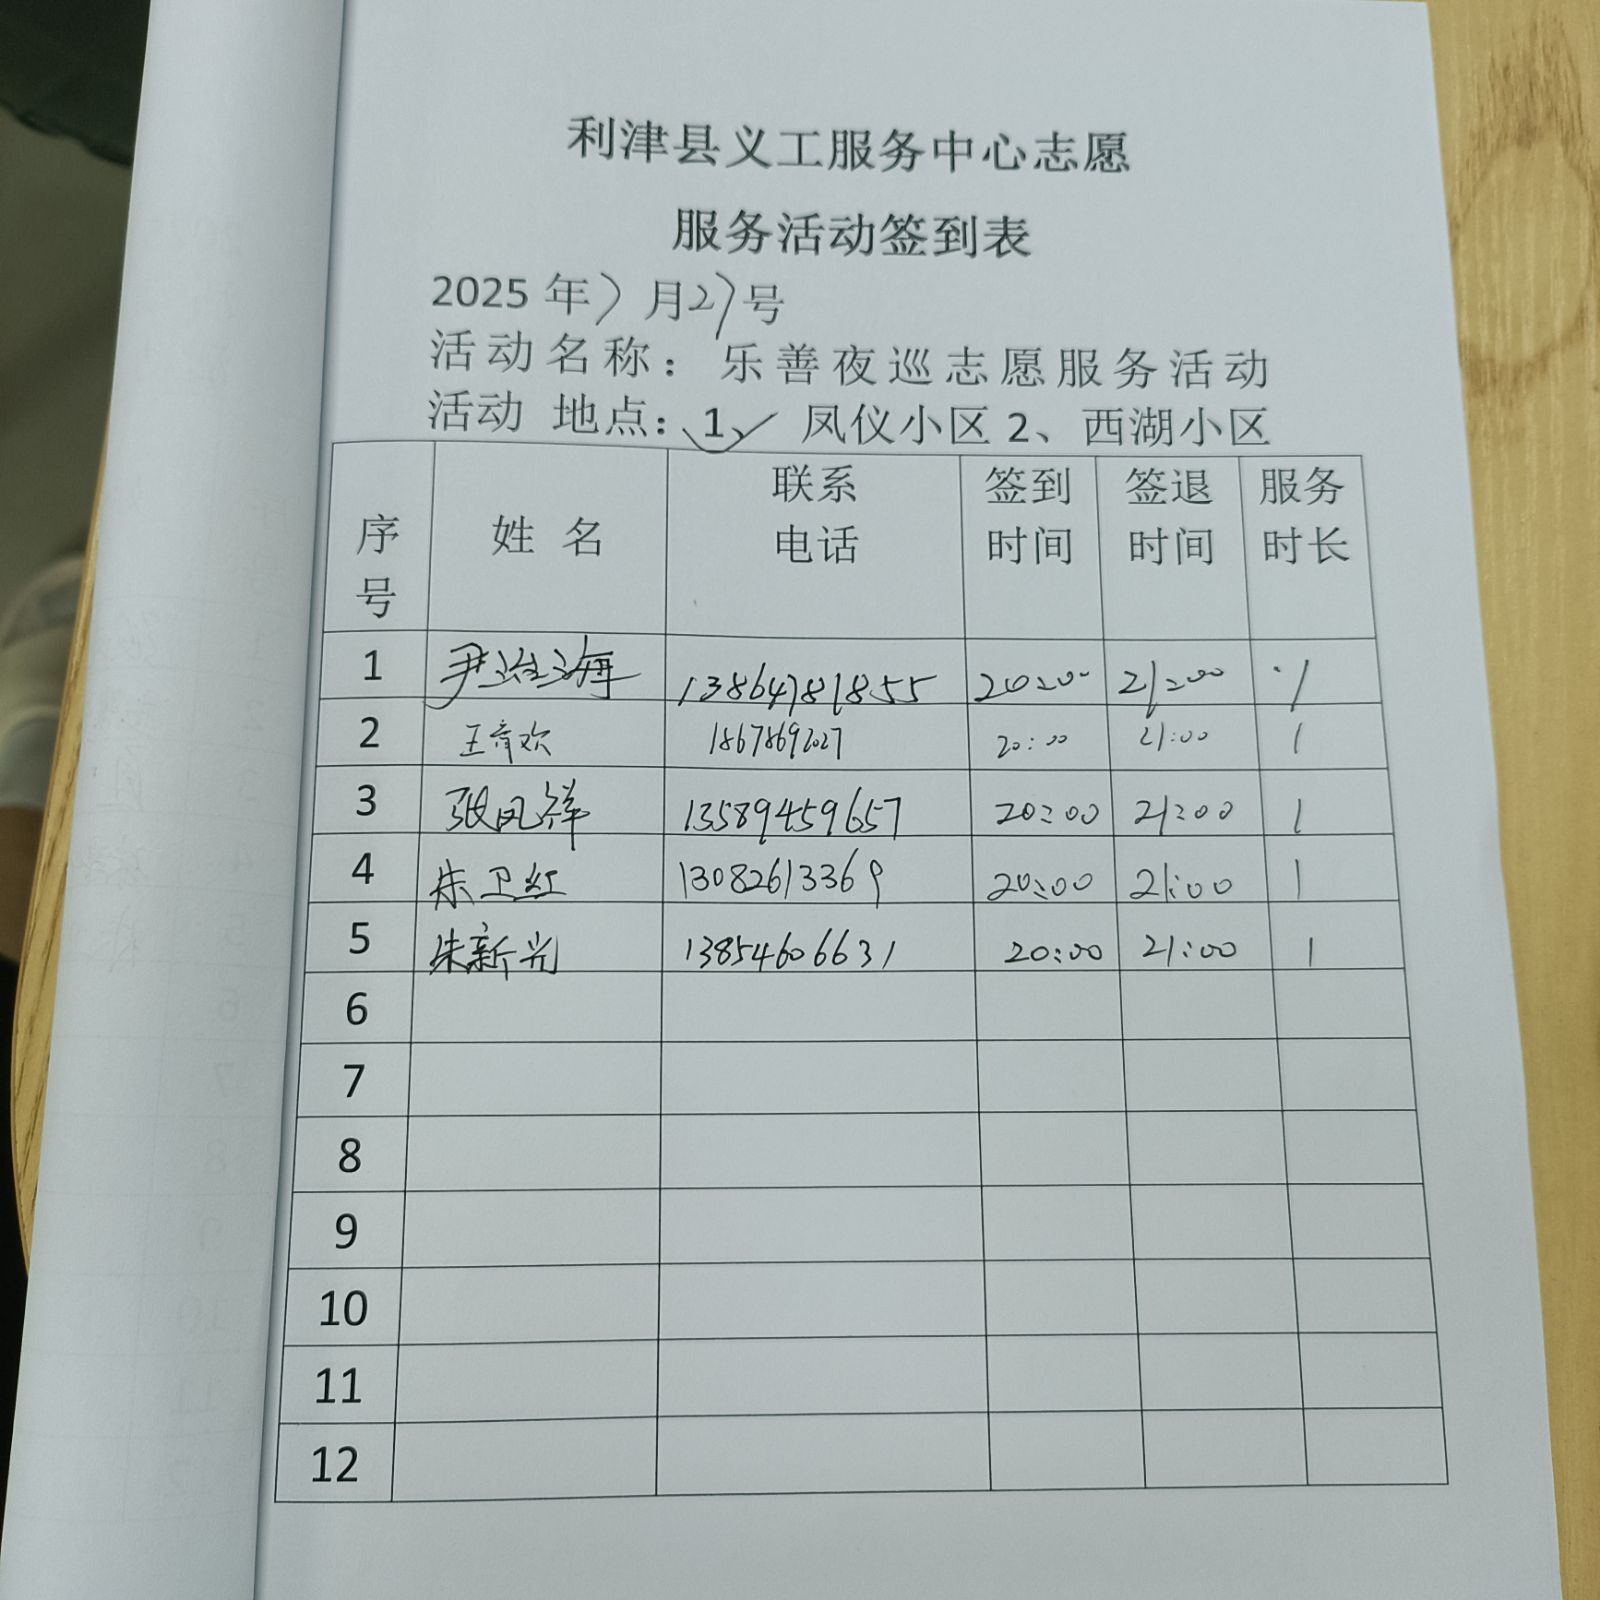 利津县义工服务中心志愿
服务活动签到表
2025 年 7 月 27 号
活动名称：乐善夜巡志愿服务活动
活动 地点：1、✓ 凤仪小区 2、西湖小区
序号 姓 名 联系电话 签到时间 签退时间 服务时长
1 尹海 13864781855 20:00 21:00 1
2 王欢 18678692027 20:00 21:00 1
3 张凤祥 13589459657 20:00 21:00 1
4 朱卫红 13082613369 20:00 21:00 1
5 朱新光 13854606631 20:00 21:00 1
6
7
8
9
10
11
12